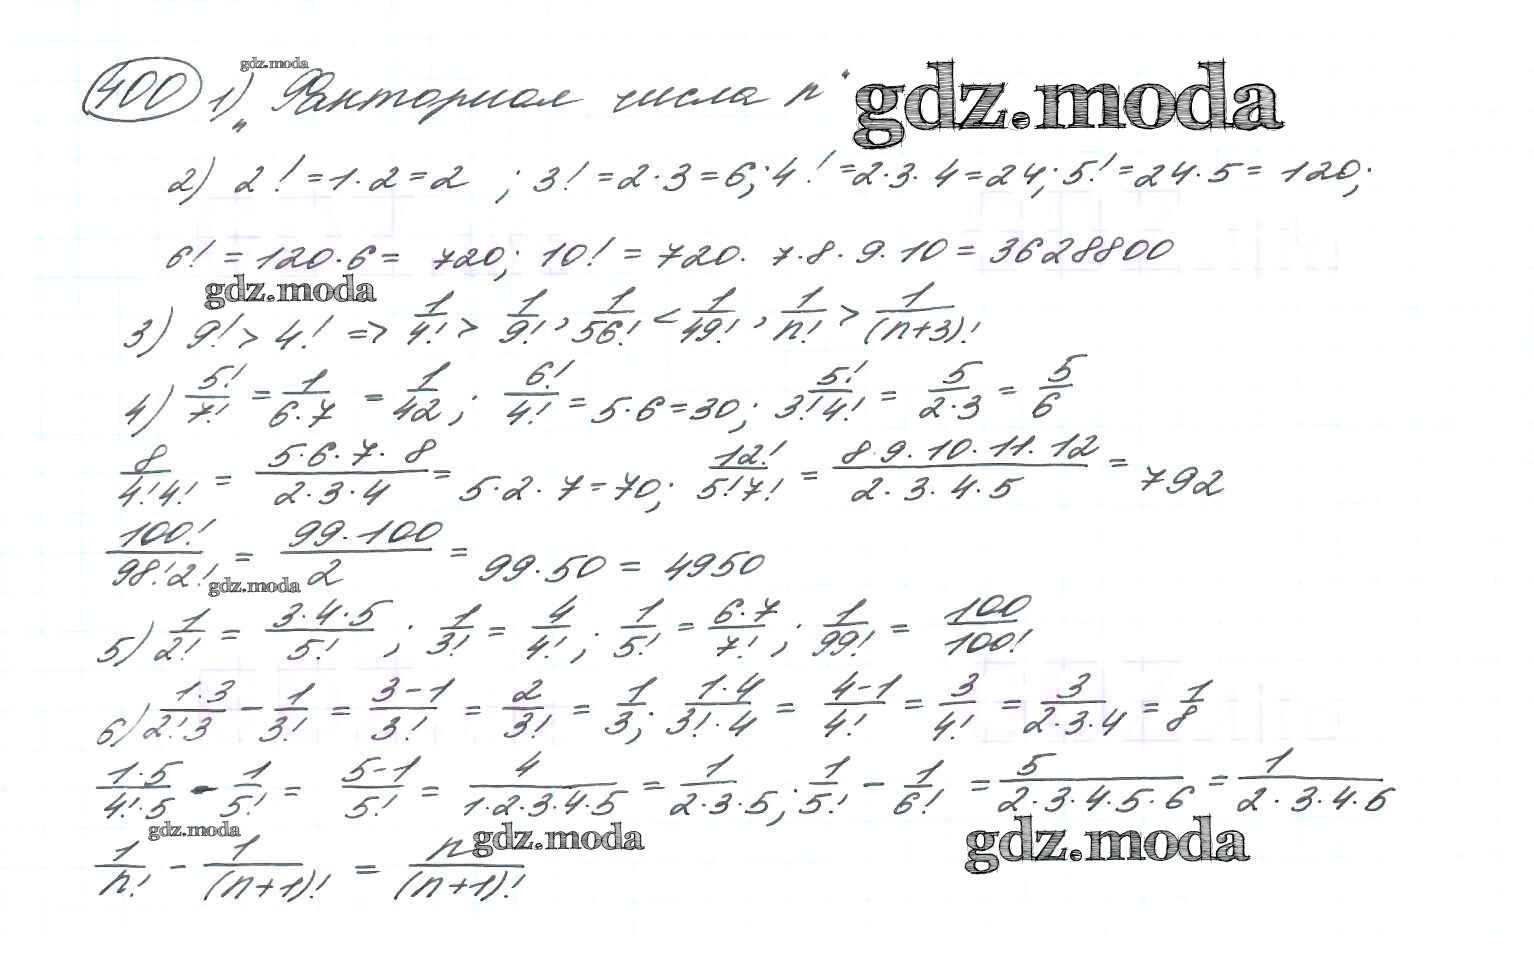 gdz.moda
400 1) „Факториал числа n“ gdz.moda
2) 2! = 1·2 = 2 ; 3! = 2·3 = 6; 4! = 2·3·4 = 24; 5! = 24·5 = 120;
6! = 120·6 = 720; 10! = 720·7·8·9·10 = 3628800
gdz.moda
3) 9! > 4! => 1/4! > 1/9!, 1/56! < 1/49!, 1/n! > 1/(n+3)!
4) 5!/7! = 1/(6·7) = 1/42; 6!/4! = 5·6 = 30; 5!/(3!4!) = 5/(2·3) = 5/6
8/(4!4!) = (5·6·7·8)/(2·3·4) = 5·2·7 = 70; 12!/(5!7!) = (8·9·10·11·12)/(2·3·4·5) = 792
100!/(98!2!) = (99·100)/2 = 99·50 = 4950
gdz.moda
5) 1/2! = (3·4·5)/5! ; 1/3! = 4/4! ; 1/5! = (6·7)/7! ; 1/99! = 100/100!
6) (1·3)/(2!·3) - 1/3! = (3-1)/3! = 2/3! = 1/3; (1·4)/(3!·4) = (4-1)/4! = 3/4! = 3/(2·3·4) = 1/8
(1·5)/(4!·5) - 1/5! = (5-1)/5! = 4/(1·2·3·4·5) = 1/(2·3·5); 1/5! - 1/6! = 5/(2·3·4·5·6) = 1/(2·3·4·6)
gdz.moda gdz.moda gdz.moda
1/n! - 1/(n+1)! = n/(n+1)!